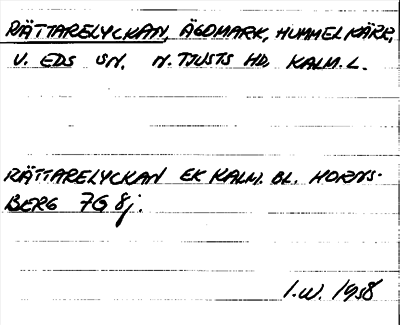 RÄTTARELYCKAN, ÄGOMARK, HUMMELKÄRR,
V. EDS SN. N. TJUSTS HD. KALM. L.
RÄTTARELYCKAN EK KALM. BL. HORNS-
BERG 7G 8j.
I.W. 1958